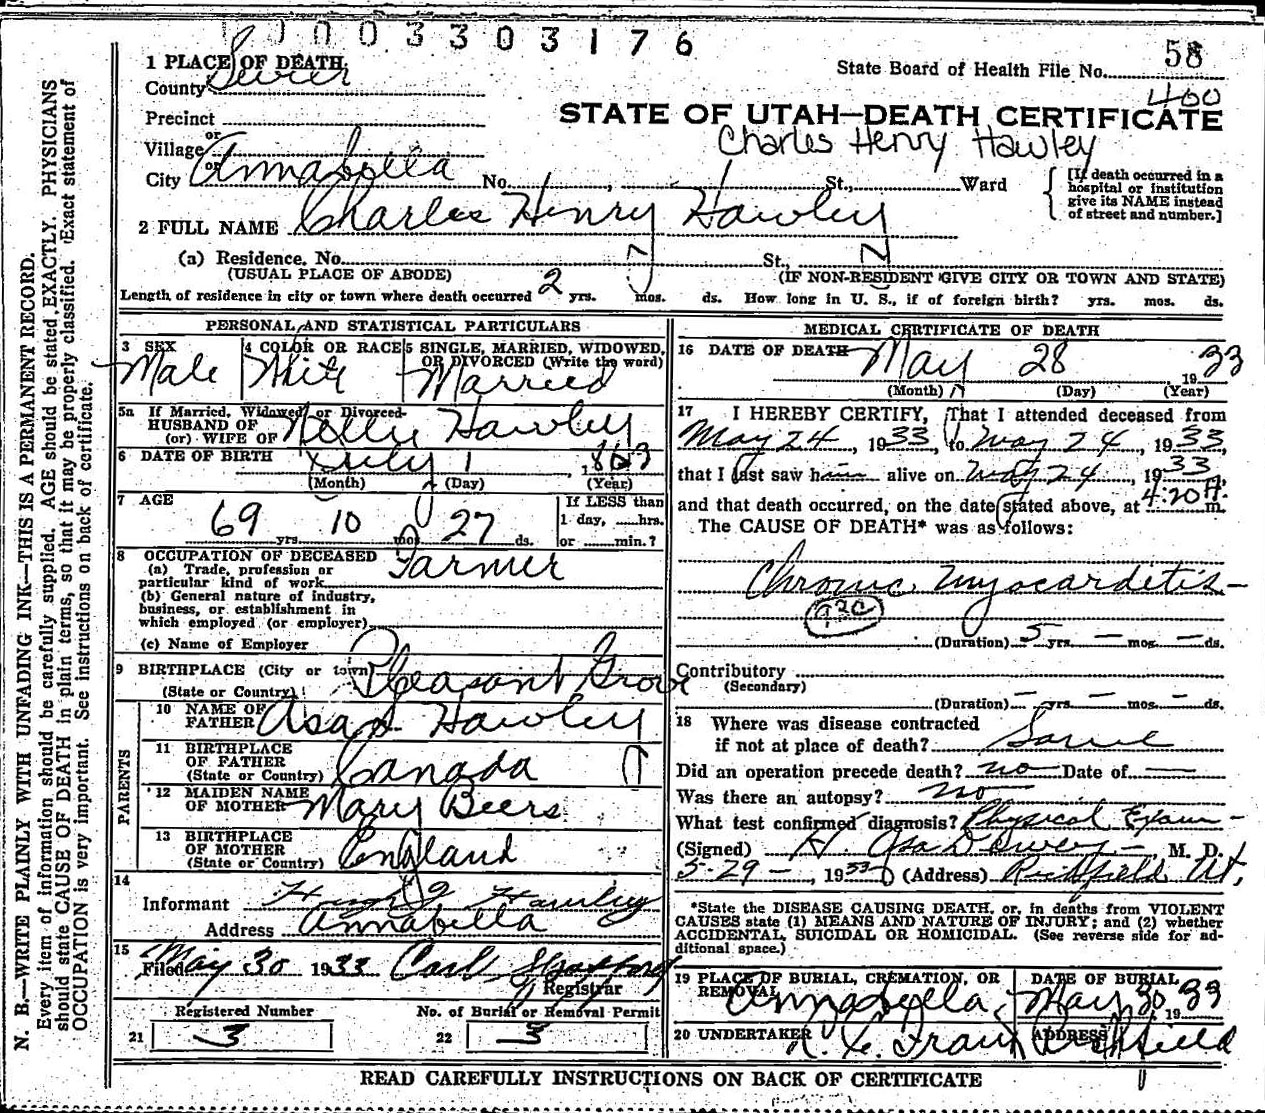 0 0 0 3 3 0 3 1 7 6
58
1 PLACE OF DEATH
State Board of Health File No.
County Sevier
400
Precinct
STATE OF UTAH—DEATH CERTIFICATE
or
Charles Henry Hawley
Village
or
City Annabella No. , St., Ward
[If death occurred in a hospital or institution give its NAME instead of street and number.]
2 FULL NAME Charles Henry Hawley
(a) Residence. No. St.,
(USUAL PLACE OF ABODE) (IF NON-RESIDENT GIVE CITY OR TOWN AND STATE)
Length of residence in city or town where death occurred 2 yrs. mos. ds. How long in U. S., if of foreign birth? yrs. mos. ds.
N. B.—WRITE PLAINLY WITH UNFADING INK—THIS IS A PERMANENT RECORD.
Every item of information should be carefully supplied. AGE should be stated EXACTLY. PHYSICIANS
should state CAUSE OF DEATH in plain terms, so that it may be properly classified. Exact statement of
OCCUPATION is very important. See instructions on back of certificate.
PERSONAL AND STATISTICAL PARTICULARS
3 SEX 4 COLOR OR RACE 5 SINGLE, MARRIED, WIDOWED,
OR DIVORCED (Write the word)
Male White Married
5a If Married, Widowed or Divorced
HUSBAND OF
(or) WIFE OF Nellie Hawley
6 DATE OF BIRTH July 1 1863
(Month) (Day) (Year)
7 AGE If LESS than
69 yrs. 10 mos. 27 ds. 1 day, hrs.
or min.?
8 OCCUPATION OF DECEASED
(a) Trade, profession or
particular kind of work Farmer
(b) General nature of industry,
business, or establishment in
which employed (or employer)
(c) Name of Employer
9 BIRTHPLACE (City or town) Pleasant Grove
(State or Country)
PARENTS
10 NAME OF
FATHER Asa S. Hawley
11 BIRTHPLACE
OF FATHER
(State or Country) Canada
12 MAIDEN NAME
OF MOTHER Mary Beers
13 BIRTHPLACE
OF MOTHER
(State or Country) England
14
Informant Hawley
Address Annabella
15
Filed May 30 1933 Carl
Registrar
Registered Number No. of Burial or Removal Permit
21 3 22 3
MEDICAL CERTIFICATE OF DEATH
16 DATE OF DEATH May 28 1933
(Month) (Day) (Year)
17 I HEREBY CERTIFY, That I attended deceased from
May 24, 1933, to May 24, 1933,
that I last saw him alive on May 24, 1933,
and that death occurred, on the date stated above, at 4:20 A. m.
The CAUSE OF DEATH* was as follows:
Chronic Myocarditis—
(Duration) 5 yrs. — mos. — ds.
Contributory
(Secondary)
(Duration) — yrs. — mos. — ds.
18 Where was disease contracted
if not at place of death? Same
Did an operation precede death? no Date of —
Was there an autopsy? no
What test confirmed diagnosis? Physical Exam—
(Signed) H. Asa Dewey—, M. D.
5-29-, 1933 (Address) Richfield Ut.
*State the DISEASE CAUSING DEATH, or, in deaths from VIOLENT
CAUSES state (1) MEANS AND NATURE OF INJURY; and (2) whether
ACCIDENTAL, SUICIDAL OR HOMICIDAL. (See reverse side for ad-
ditional space.)
19 PLACE OF BURIAL, CREMATION, OR DATE OF BURIAL
REMOVAL Annabella, May 30, 1933
20 UNDERTAKER ADDRESS Richfield
READ CAREFULLY INSTRUCTIONS ON BACK OF CERTIFICATE